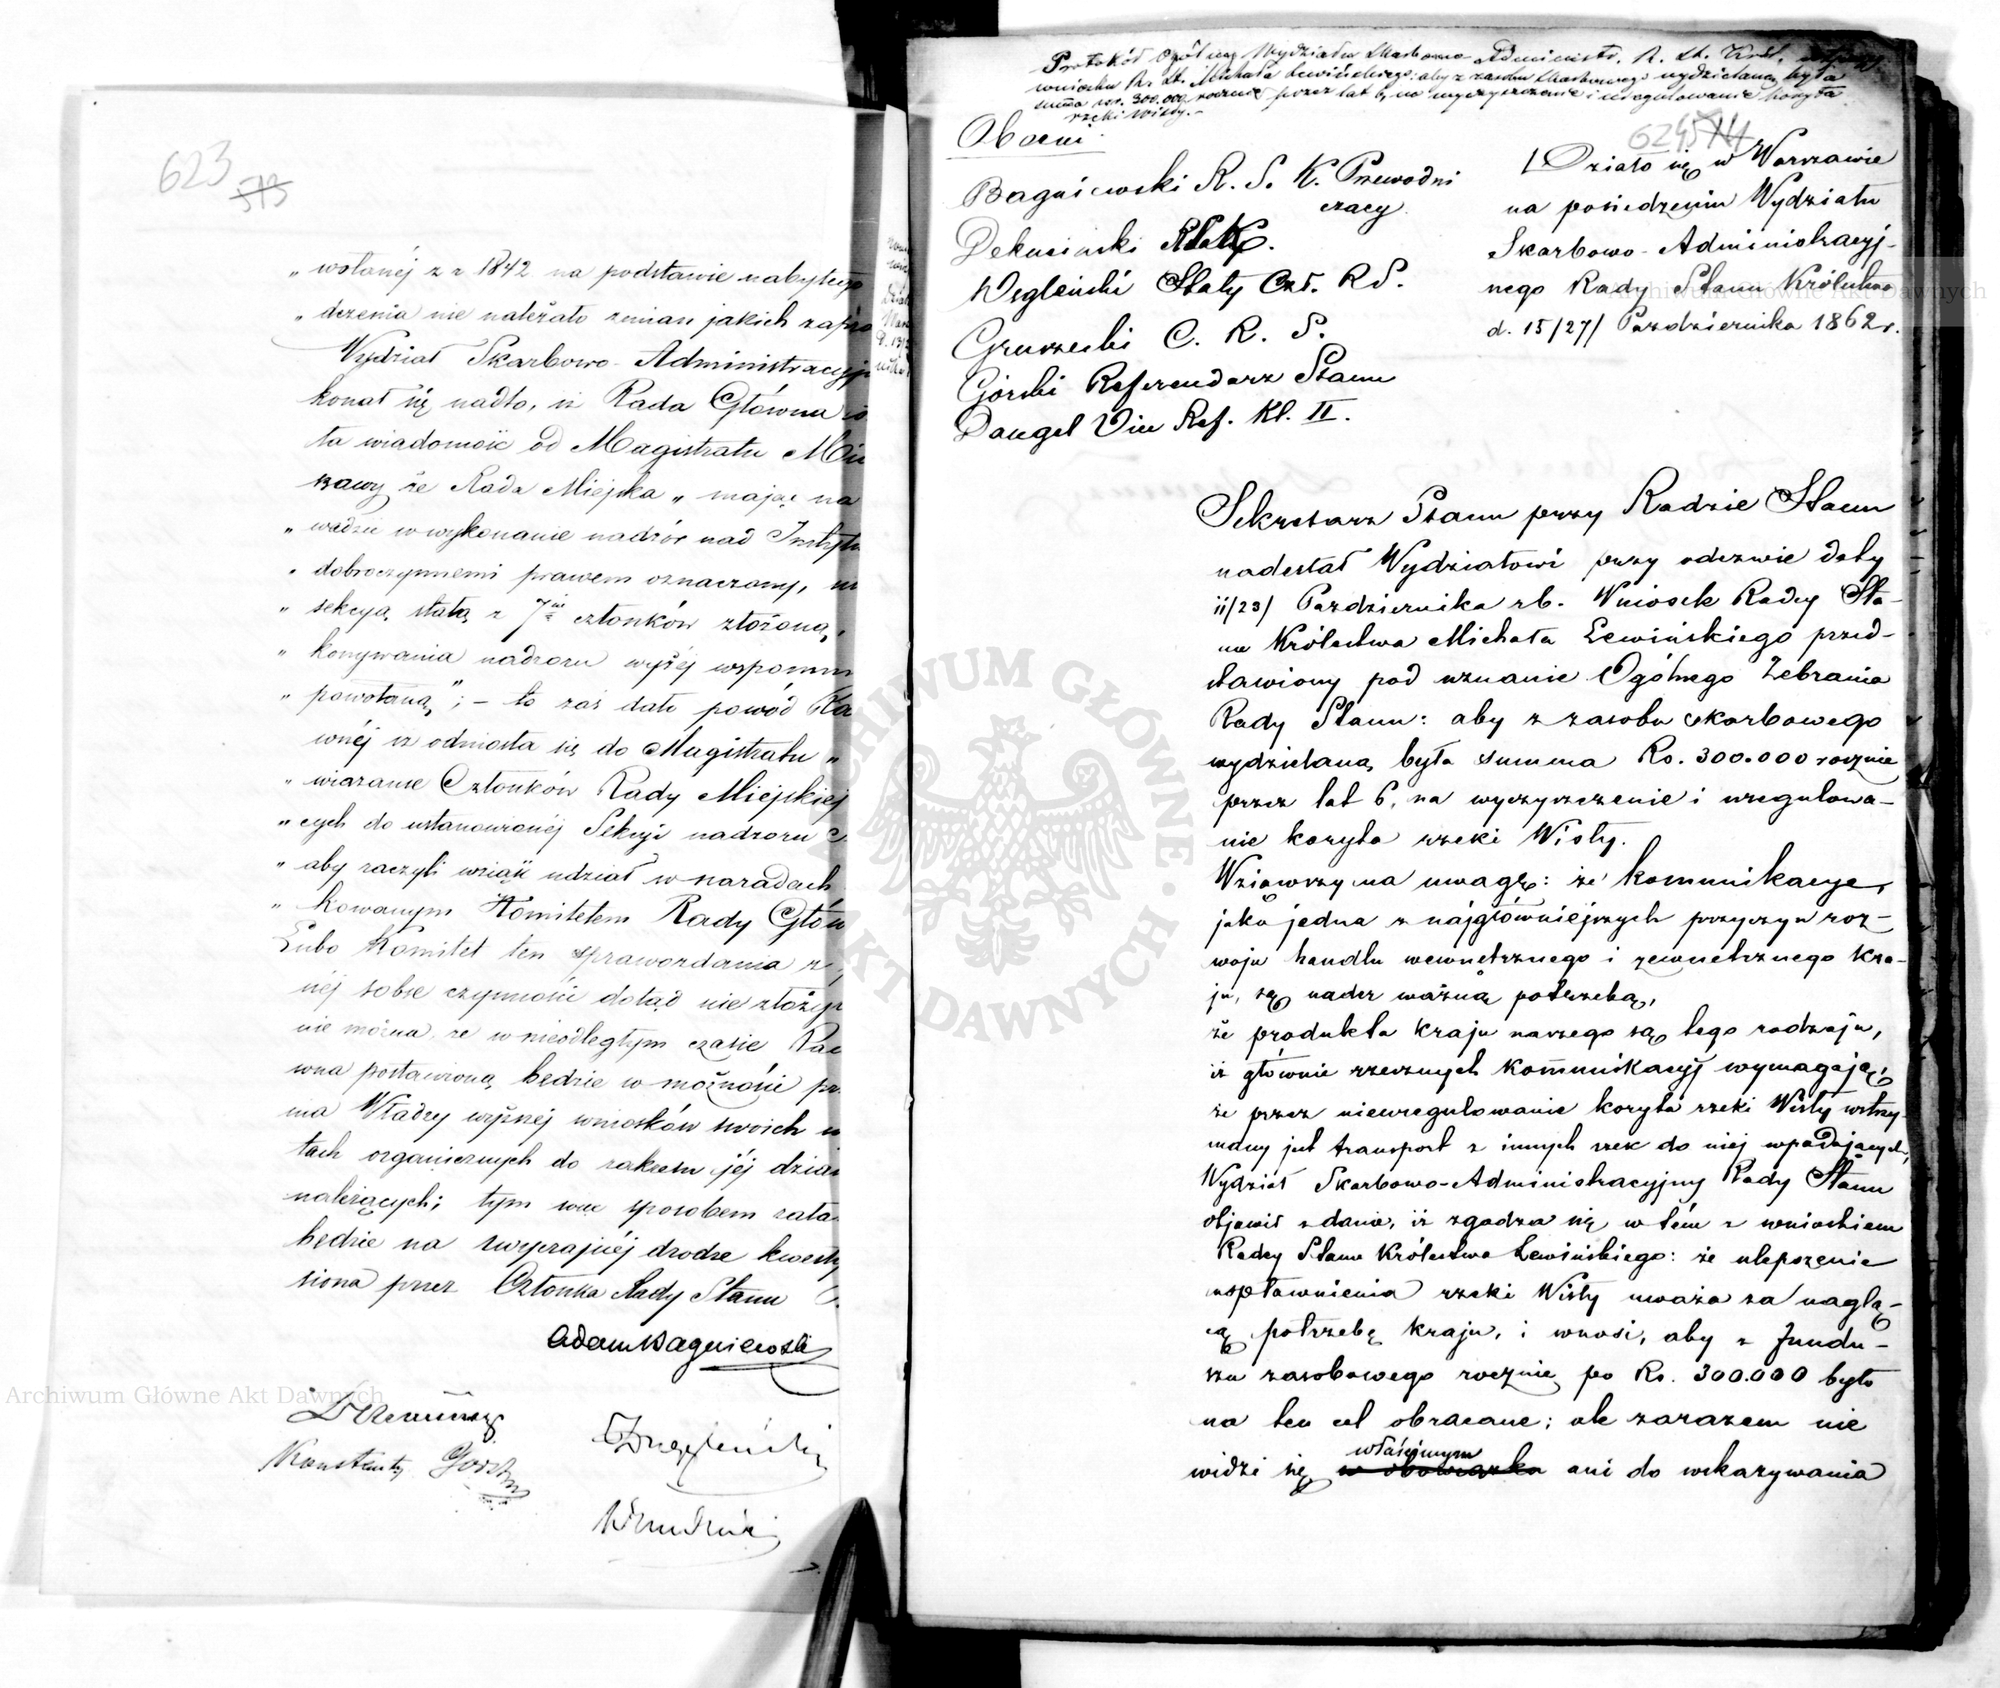 623
573
„ wołanéj z r 1842 na podstawie nabytego
„ dczenia nie należało zmian jakich zapro
Wydział Skarbowo-Administracyj
konał się nadto, iż Rada Główna
ła wiadomość od Magistratu Mia
szawy że Rada Miejska „ mając na
„ wadzić w wykonanie nadzór nad Instytu
„ dobroczynnemi prawem oznaczony,
„ sekcyą stałą z 7iu członków złożoną,
„ konywania nadzoru wyżéj wspomn
„ powołaną"; – to zaś dało powód Ra
wnéj iż odniosła się do Magistratu „
„ wiązanie Członków Rady Miejskiej
„ cych do ustanowionéj Sekcyi nadzoru
„ aby raczyli wziąść udział w naradach
„ kowanym Komitetem Rady Głów
Lubo Komitet ten sprawozdania z
néj sobie czynności dotąd nie złożył
nie można, że w nieodległym czasie Rad
wna postawioną będzie w możności pr
nia Władzy wyższéj wniosków swoich w
tach organicznych do zakresu jéj dział
należących; tym więc sposobem zała
będzie na zwyczajnéj drodze kwesty
siona przez Członka Rady Stanu
Adam Bagniewski
Konstanty Górski
Węgleński
Protokół Ogólny Wydziału Skarbowo-Administr. R. St. Król.
wniosku Rs. St. Michała Lewińskiego: aby z zasobu Skarbowego wydzielaną była
summa rsr. 300.000 rocznie przez lat 6, na wyczyszczenie i uregulowanie koryta
rzeki Wisły.–
624
574
Obecni
Bagniewski R. S. K. Przewodni
czący
Dekuciński RStK.
Węgleński Stały Czł. R S.
Gruszecki C. R. S.
Górski Referendarz Stanu
Dangel Vice Ref. Kl. II.
Działo się w Warszawie
na posiedzeniu Wydziału
Skarbowo-Administracyj-
nego Rady Stanu Królestwa
d. 15/27/ Października 1862 r.
Sekretarz Stanu przy Radzie Stanu
nadesłał Wydziałowi przy odezwie daty
11/23/ Października rb. Wniosek Radcy Sta-
nu Królestwa Michała Lewińskiego przed-
stawiony pod uznanie Ogólnego Zebrania
Rady Stanu: aby z zasobu skarbowego
wydzielaną była summa Rs. 300.000 rocznie
przez lat 6, na wyczyszczenie i uregulowa-
nie koryta rzeki Wisły.
Wziąwszy na uwagę: że komunikacye,
jako jedna z najgłówniejszych przyczyn roz-
woju handlu wewnetrznego i zewnetrznego kra-
ju, są nader ważną potrzebą,
że produkta kraju naszego są tego rodzaju,
iż głównie rzecznych kommunikacyj wymagają,
że przez nieuregulowanie koryta rzeki Wisły wstrzy-
many jest transport z innych rzek do niej wpadających,
Wydział Skarbowo-Administracyjny Rady Stanu
objawił zdanie, iż zgadza się w tém z wnioskiem
Radcy Stanu Królestwa Lewińskiego: że ulepszenie
uspławnienia rzeki Wisły uważa za naglą-
cą potrzebę kraju, i wnosi, aby z fundu-
szu zasobowego rocznie po Rs. 300.000 było
na ten cel obracane; ale zarazem nie
widzi się właściwym w obowiązku ani do wskazywania
ARCHIWUM GŁÓWNE AKT DAWNYCH
Archiwum Główne Akt Dawnych
Archiwum Główne Akt Dawnych